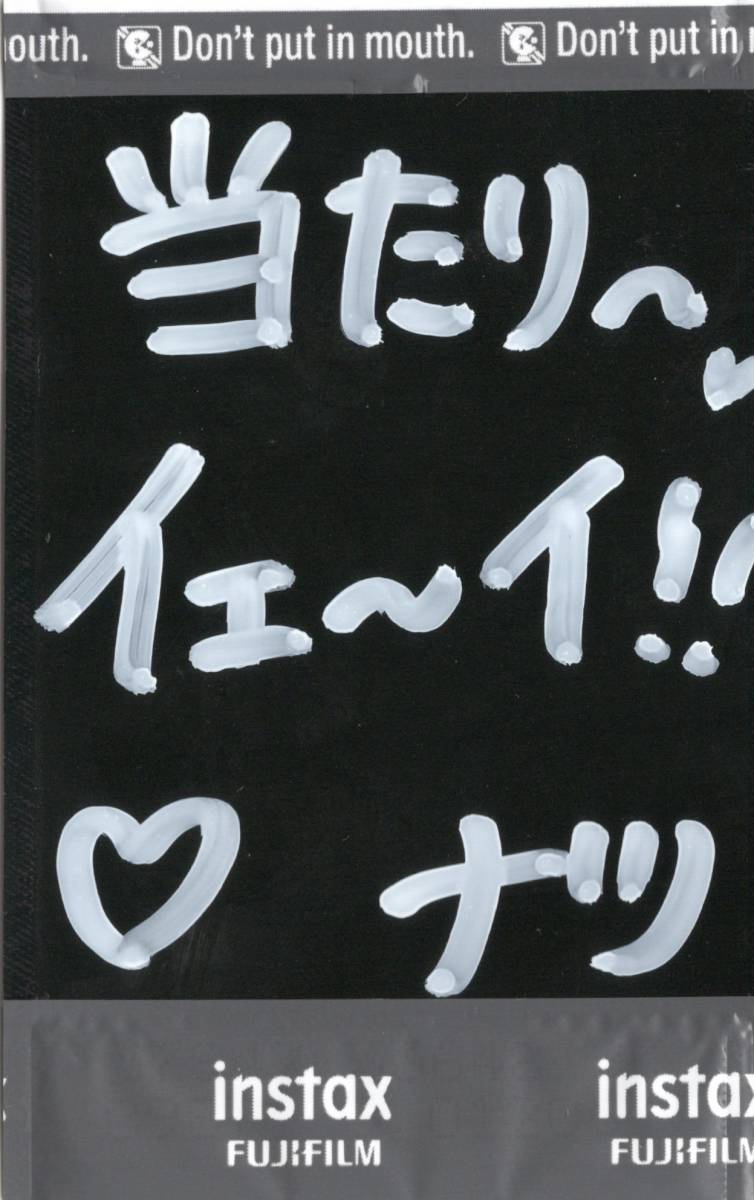 outh. Don't put in mouth. Don't put in
当たり〜
イェ〜イ!!
♡ ナツ
instax insta
FUJIFILM FUJIFILM